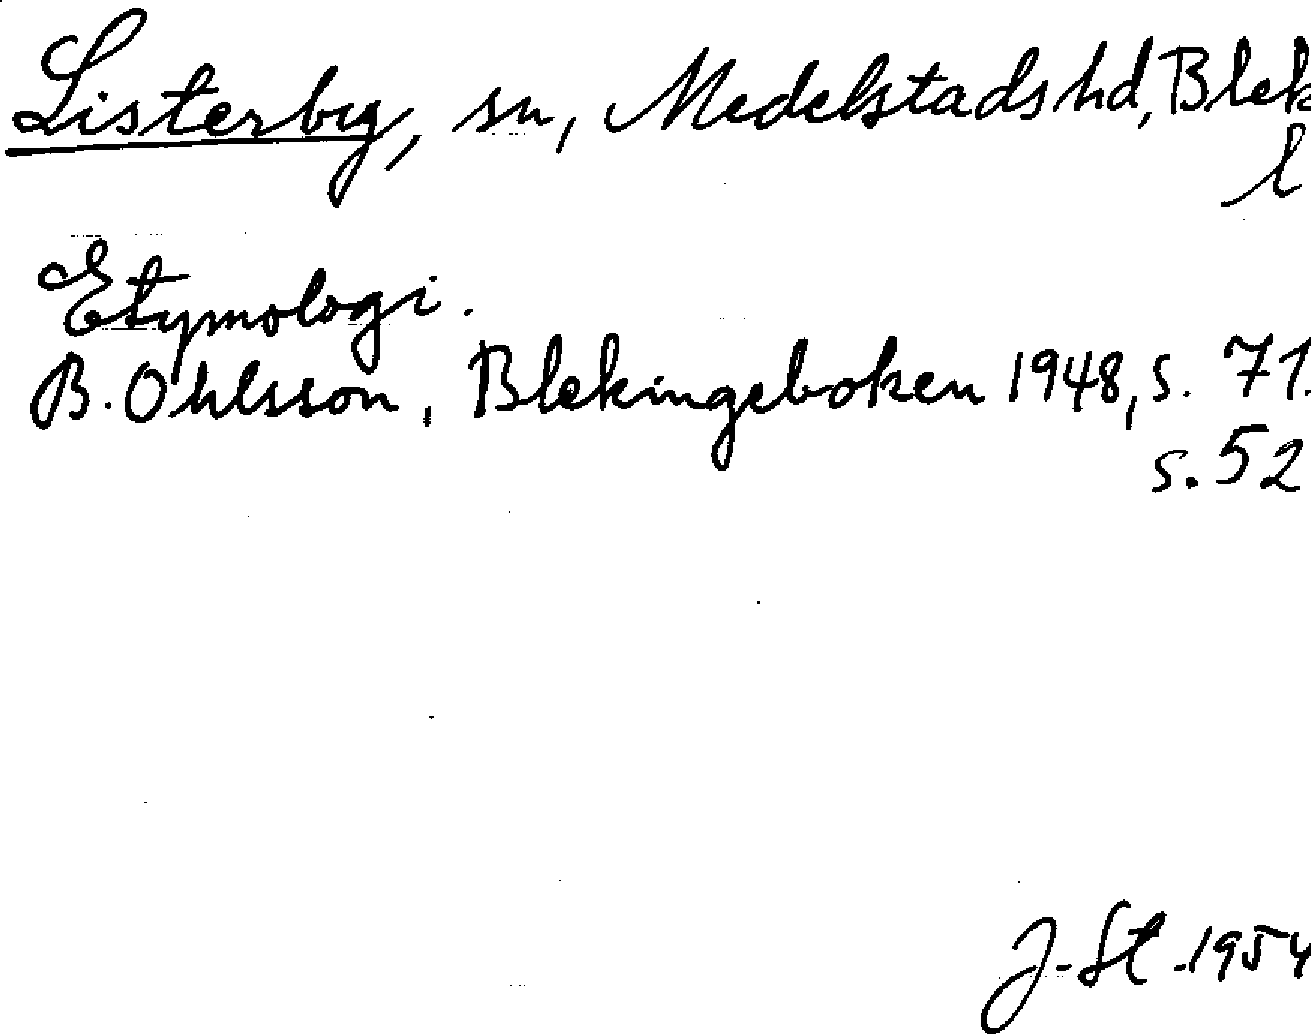 Listerby, sn, Medelstads hd, Blek
l
Etymologi.
B. Ohlsson, Blekingeboken 1948, s. 71.
s. 52
J. St. 1954